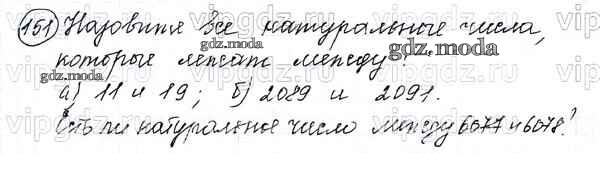 151 Назовите все натуральные числа,
которые лежат между:
а) 11 и 19; б) 2089 и 2091.
Есть ли натуральное число между 6077 и 6078?
gdz.moda
gdz.moda
gdz.moda
vipgdz.ru
vipgdz.ru
vipgdz.ru